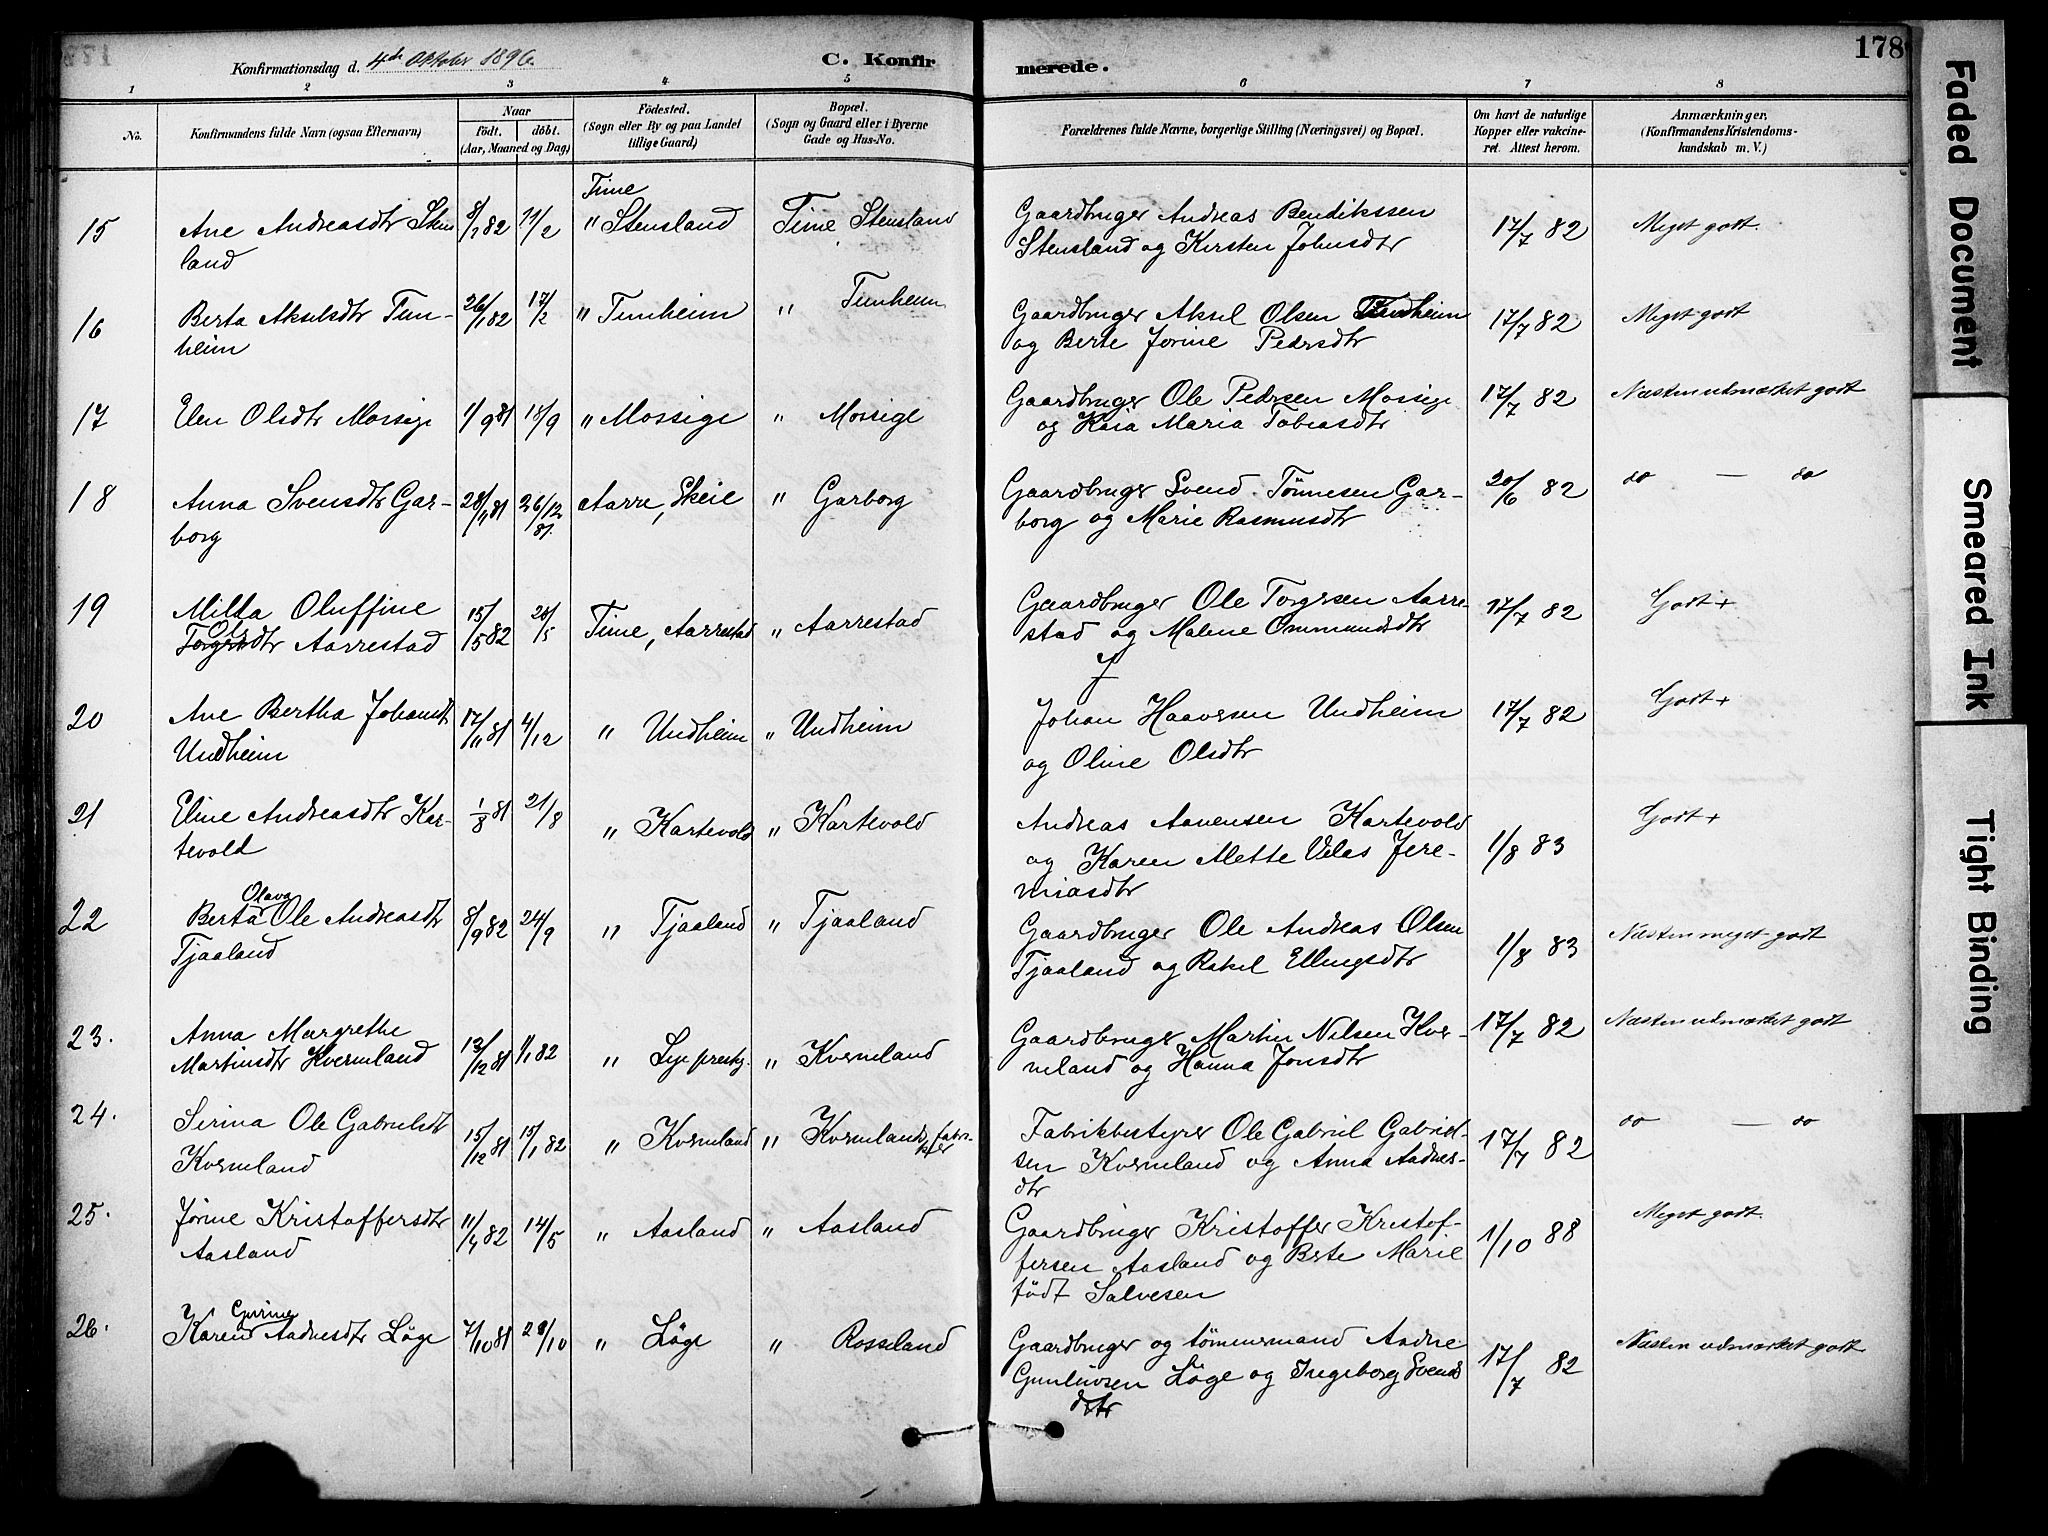 Konfirmationsdag d. 4de Oktober 1896. C. Konfirmerede. 178
1 2 3 4 5 6 7 8
No. Konfirmandens fulde Navn (ogsaa Efternavn) Naar födt. döbt. (Aar, Maaned og Dag) Födested. (Sogn eller By og paa Landet tillige Gaard) Bopæl. (Sogn og Gaard eller i Byerne Gade og Hus-No. Forældrenes fulde Navne, borgerlige Stilling (Næringsvei) og Bopæl. Om havt de naturlige Kopper eller vakcineret. Attest herom. Anmærkninger. (Konfirmandens Kristendomskundskab m. V.)
15 Ane Andreasdtr Stensland 8/1 82 11/2 Time " Stensland Time Stensland Gaardbruger Andreas Bendikssen Stensland og Kirsten Johnsdtr 17/7 82 Meget godt.
16 Berta Akselsdtr Tunheim 26/1 82 17/2 " Tunheim " Tunheim Gaardbruger Aksel Olsen Tunheim og Berte Jorine Pedrsdtr 17/7 82 Meget godt
17 Elen Olsdtr Mossige 1/9 81 18/9 " Mossige " Mossige Gaardbruger Ole Pedersen Mossige og Kaia Maria Tobiasdtr 17/7 82 Næsten udmærket godt
18 Anna Svensdtr Garborg 28/11 81 26/12 81. Aarre, Skeie " Garborg Gaardbruger Svend Tönnesen Garborg og Marie Rasmusdtr 20/6 82 do — do
19 Milda Oluffine Ols Torgersdtr Aarrestad 15/5 82 28/5 Time, Aarrestad " Aarrestad Gaardbruger Ole Torgersen Aarrestad og Malene Ommundsdtr 17/7 82 Godt +
20 Ane Bertha Johansdtr Undheim 17/11 81 4/12 " Undheim " Undheim Johan Haaversen Undheim og Oline Olsdtr 17/7 82 Godt +
21 Eline Andreasdtr Kartevold 1/8 81 21/8 " Kartevold " Kartevold Andreas Aanensen Kartevold og Karen Mette Velas Jeremiasdtr 1/8 83 Godt +
22 Berta Olava Ole Andreasdtr Tjaaland 8/9 82 24/9 " Tjaaland " Tjaaland Gaardbruger Ole Andreas Olsen Tjaaland og Rakel Ellingsdtr 1/8 83 Næsten meget godt
23. Anna Margrethe Martinsdtr Kvernland 13/12 81 1/1 82 " Lye prestg. " Kverneland Gaardbruger Martin Nilsen Kverneland og Hanna Jonsdtr 17/7 82 Næsten udmærket godt
24. Serina Ole Gabrielsdtr Kverneland 15/12 81 15/1 82 " Kverneland " Kvernelands fabrikker Fabrikbestyrer Ole Gabriel Gabrielsen Kverneland og Anna Aadnesdtr 17/7 82 do — do
25. Jorine Kristoffersdtr Aasland 11/4 82 14/5 " Aasland " Aasland Gaardbruger Kristoffer Kristoffersen Aasland og Berte Marie födt Salvesen 1/10 88 Meget godt.
26. Karen Gurine Aadnesdtr Löge 7/10 81 28/10 " Löge " Rosseland Gaardbruger og tömmermand Aadne Gunleivsen Löge og Ingeborg Svendsdtr 17/7 82 Næsten udmærket godt
Faded Document
Smeared Ink
Tight Binding